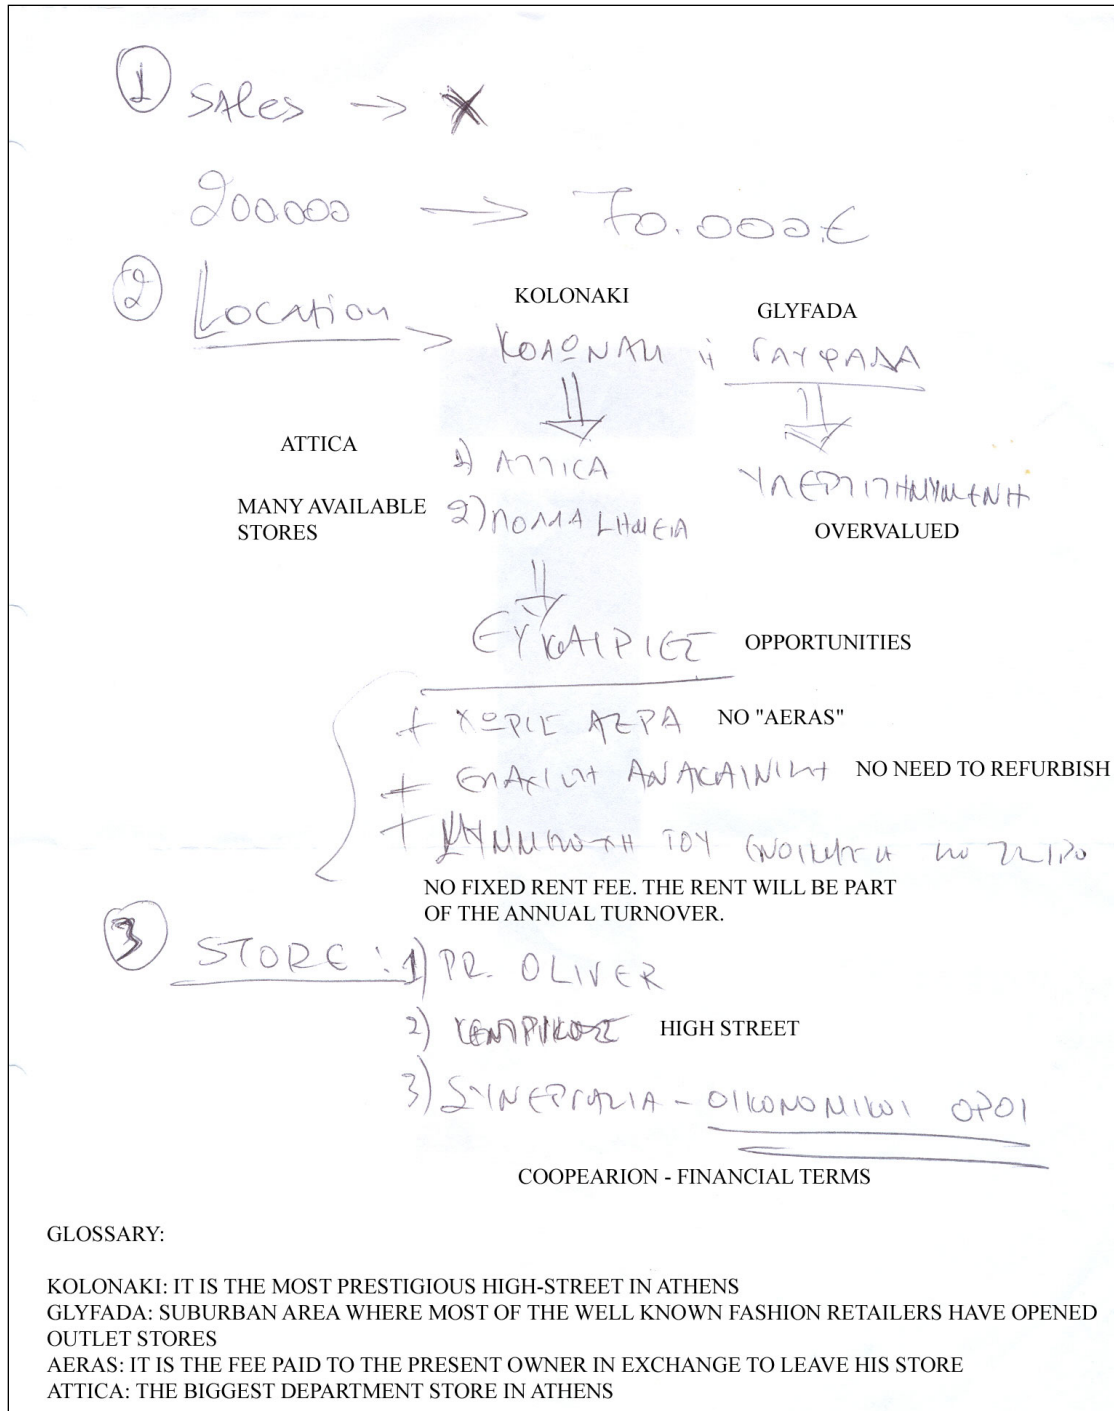 ① SALes → X
200.000 → 70.000 €
② Location
KOLONAKI
GLYFADA
→ ΚΟΛΩΝΑΚΙ ή ΓΛΥΦΑΔΑ
ATTICA
1) ΑΤΤΙΚΑ
MANY AVAILABLE
STORES
2) ΠΟΛΛΑ ΣΗΜΕΙΑ
OVERVALUED
ΕΥΚΑΙΡΙΕΣ
OPPORTUNITIES
+ ΧΩΡΙΣ ΑΕΡΑ
NO "AERAS"
+ ΕΛΑΧΙΣΤΗ ΑΝΑΚΑΙΝΙΣΗ
NO NEED TO REFURBISH
+ ΤΟΥ
NO FIXED RENT FEE. THE RENT WILL BE PART
OF THE ANNUAL TURNOVER.
③ STORE : 1) PR. OLIVER
2) ΚΕΝΤΡΙΚΟΣ
HIGH STREET
3) ΣΥΝΕΡΓΑΣΙΑ - ΟΙΚΟΝΟΜΙΚΟΙ ΟΡΟΙ
COOPEARION - FINANCIAL TERMS
GLOSSARY:
KOLONAKI: IT IS THE MOST PRESTIGIOUS HIGH-STREET IN ATHENS
GLYFADA: SUBURBAN AREA WHERE MOST OF THE WELL KNOWN FASHION RETAILERS HAVE OPENED
OUTLET STORES
AERAS: IT IS THE FEE PAID TO THE PRESENT OWNER IN EXCHANGE TO LEAVE HIS STORE
ATTICA: THE BIGGEST DEPARTMENT STORE IN ATHENS